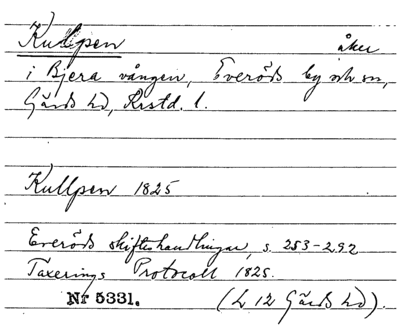 Kullpen åker
i Bjera vången, Everöds by och sn,
Gärds hd, Krstd. l.
Kullpen 1825
Everöds skifteshandlingar, s. 253-292
Taxerings Protocoll 1825.
Nr 5331. (L 12 Gärds hd).